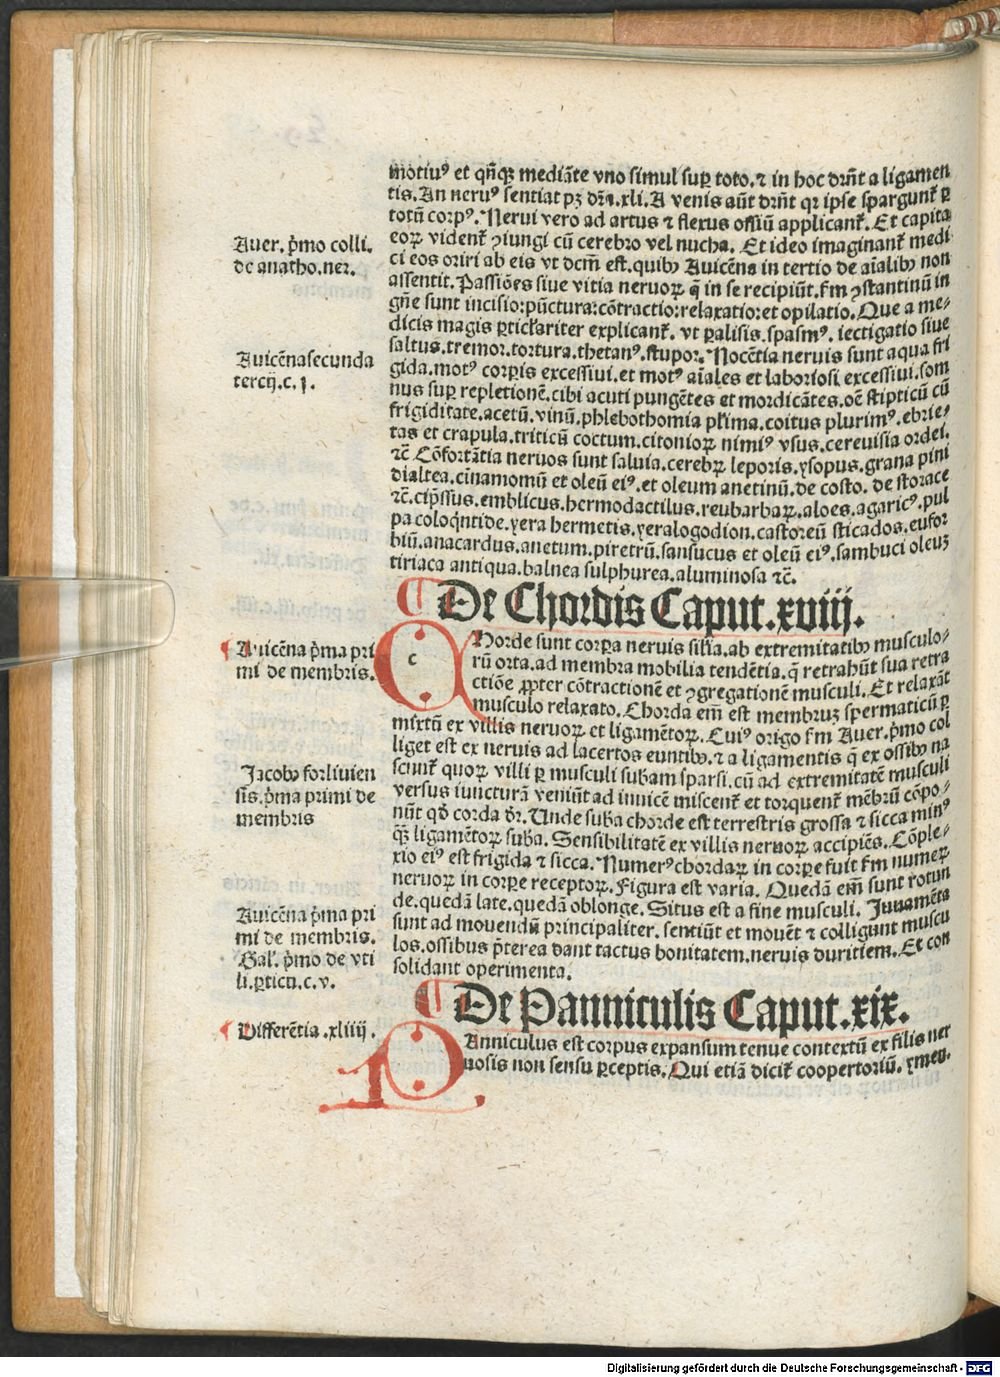 motiuꝰ et qñqꝫ mediāte vno simul suꝑ toto. ⁊ in hoc drñt a ligamen
tis. An neruꝰ sentiat pꝫ dr̄ia. xli. A venis aūt drñt qꝛ ipse spargunt̄ ꝑ
totū corpꝰ. Nerui vero ad artus ⁊ flexus ossiū applicant̄. Et capita
eoꝝ vident̄ ꝯiungi cū cerebro vel nucha. Et ideo imaginant̄ medi
ci eos oriri ab eis vt dcm̄ est. quibꝰ Auicēna in tertio de aīalibꝰ non
assentit. Passiōes siue vitia neruoꝝ q̄ in se recipiūt. ẜm ꝯstantinū in
gn̄e sunt incisio: pūctura: cōtractio: relaxatio: et opilatio. Que a me⸗
dicis magis ꝑticl̄ariter explicant̄. vt ꝑalisis. spasmꝰ. iectigatio siue
saltus. tremor. tortura. thetanꝰ. stupor. Nocētia neruis sunt aqua fri
gida. motꝰ corꝑis excessiui. et motꝰ aīales et laboriosi excessiui. som
nus suꝑ repletionē. cibi acuti pungētes et mordicātes. oē stipticū cū
frigiditate. acetū. vinū. phlebothomia pl̄ima. coitus plurimꝰ. ebrie⸗
tas et crapula. triticū coctum. citonioꝝ nimiꝰ vsus. cereuisia ordei.
⁊c̄ Cōfortātia neruos sunt saluia. cerebꝝ leporis. ysopus. grana pini
dialtea. cīnamomū et oleū eiꝰ. et oleum anetinū. de costo. de storace
⁊c̄. cip̄ssus. emblicus. hermodactilus. reubarbaꝝ. aloes. agaricꝰ. pul
pa coloq̄ntide. yera hermetis. yeralogodion. castoreū sticados. eufor
biū. anacardus. anetum. piretrū. sansucus et oleū eiꝰ. sambuci oleuꝫ
tiriaca antiqua. balnea sulphurea. aluminosa ⁊c̄.
Auer. p̄mo colli.
de anatho. ner.
Auicēna secunda
tercij. c. j.
¶ De Chordis Caput. xviij.
c
Horde sunt corꝑa neruis sil̄ia. ab extremitatibꝰ musculo⸗
rū orta. ad membra mobilia tendētia. q̄ retrahūt sua retra
ctiōe ꝓpter cōtractionē et ꝯgregationē musculi. Et relaxāt
musculo relaxato. Chorda em̄ est membruꝫ spermaticū ꝑ
mixtū ex villis neruoꝝ et ligamētoꝝ. Cuiꝰ origo ẜm Auer. p̄mo col
liget est ex neruis ad lacertos euntibꝰ. ⁊ a ligamentis q̄ ex ossibꝰ na
scunt̄ quoꝝ villi ꝑ musculi subam sparsi. cū ad extremitatē musculi
versus iuncturā veniūt ad inuicē miscent̄ et torquent̄ mēbrū cōpo⸗
nūt qd̄ corda dr̄. Unde suba chorde est terrestris grossa ⁊ sicca minꝰ
qꝫ ligamētoꝝ suba. Sensibilitatē ex villis neruoꝝ accipiēs. Cōple⸗
xio eiꝰ est frigida ⁊ sicca. Numerꝰ chordaꝝ in corꝑe fuit ẜm numeꝝ
neruoꝝ in corꝑe receptoꝝ. Figura est varia. Quedā em̄ sunt rotun
de. quedā late. quedā oblonge. Situs est a fine musculi. Juuamēta
sunt ad mouendū principaliter. sentiūt et mouēt ⁊ colligunt muscu
los. ossibus p̄terea dant tactus bonitatem. neruis duritiem. Et con
solidant operimenta.
¶ Auicēna p̄ma pri
mi de membris.
Jacobꝰ forliuien
sis. p̄ma primi de
membris
Auicēna p̄ma pri
mi de membris.
Gal̄. p̄mo de vti
li. ꝑticu. c. v.
¶ De Panniculis Caput. xix.
¶ Differētia. xliiij.
P
Anniculus est corpus expansum tenue contextū ex filis ner
uosis non sensu ꝑceptis. Qui etiā dicit̄ coopertoriū. ymen.
Digitalisierung gefördert durch die Deutsche Forschungsgemeinschaft - DFG